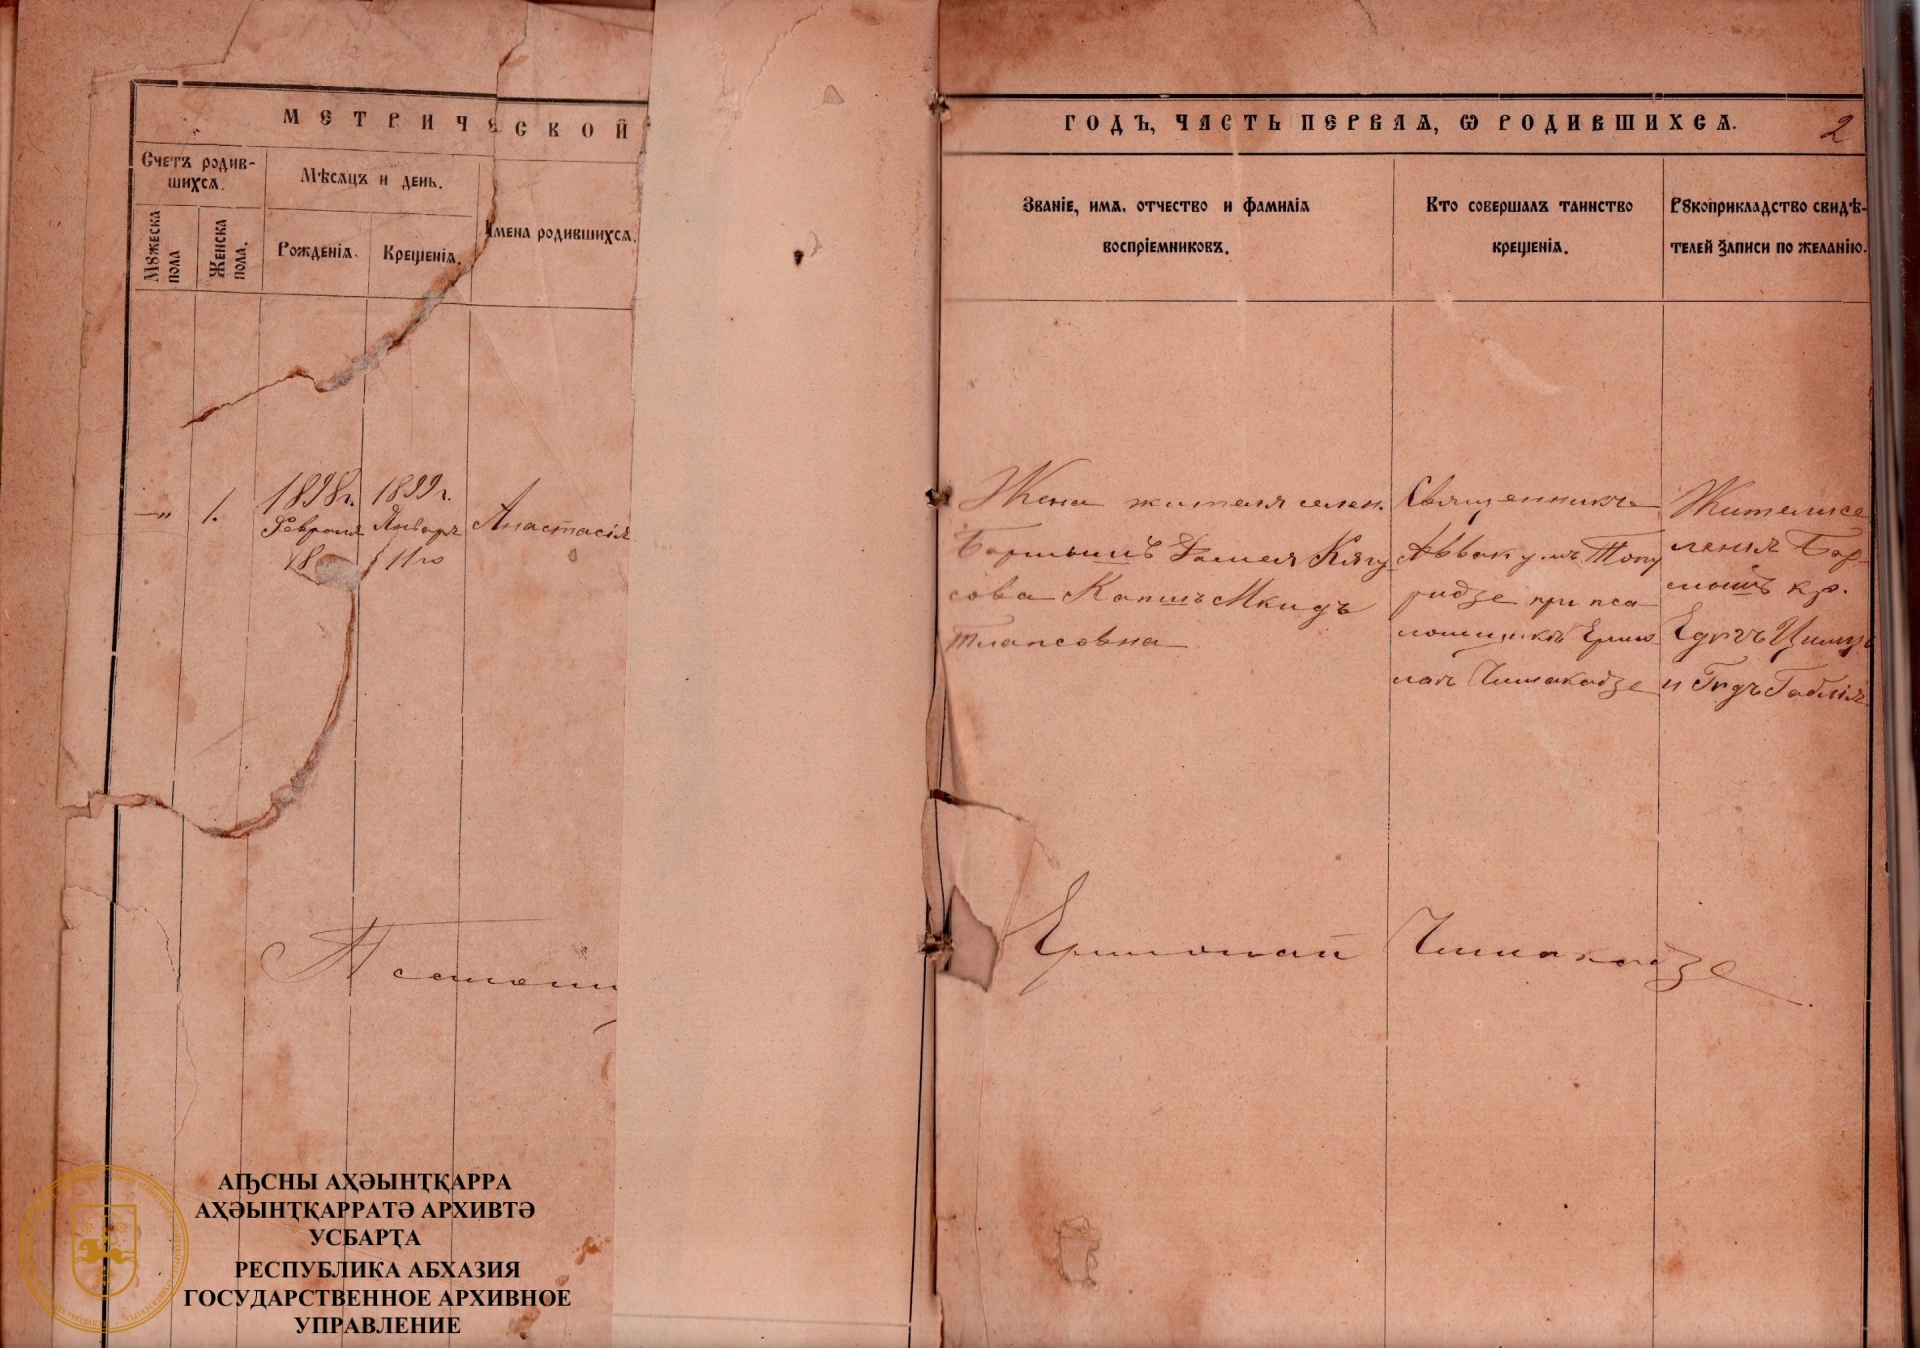 МЕТРИЧЕСКОЙ
Счетъ родив-
шихсѧ.
Мѣсѧцъ и день.
Имена родившихсѧ.
Мꙋжеска
пола
Женска
пола.
Рожденїѧ.
Крещенїѧ.
— „ 1.
1898 г.
Февраля
18
1899 г.
Январь
11го
Анастасія
Псаломщ
ГОДЪ, ЧАСТЬ ПЕРВАѦ, Ѡ РОДИВШИХСѦ.
2
Званїе, имѧ, отчество и фамилїѧ
воспрїемниковъ.
Кто совершалъ таинство
крещенїѧ.
Рꙋкоприкладство свидѣ-
телей записи по желанїю.
Жена жителя селен.
Бармышъ
сова Мкидъ
Священникъ
Аввакумъ Топу
ридзе при пса
ломщикѣ Ермо
лаѣ Чишакадзе
Жители се
ленія Бар-
мышъ кр.
и Гедъ Габлія
Ермолай Чишакадзе.
АԤСНЫ АҲӘЫНҬҚАРРА
АҲӘЫНҬҚАРРАТӘ АРХИВТӘ
УСБАРҬА
РЕСПУБЛИКА АБХАЗИЯ
ГОСУДАРСТВЕННОЕ АРХИВНОЕ
УПРАВЛЕНИЕ